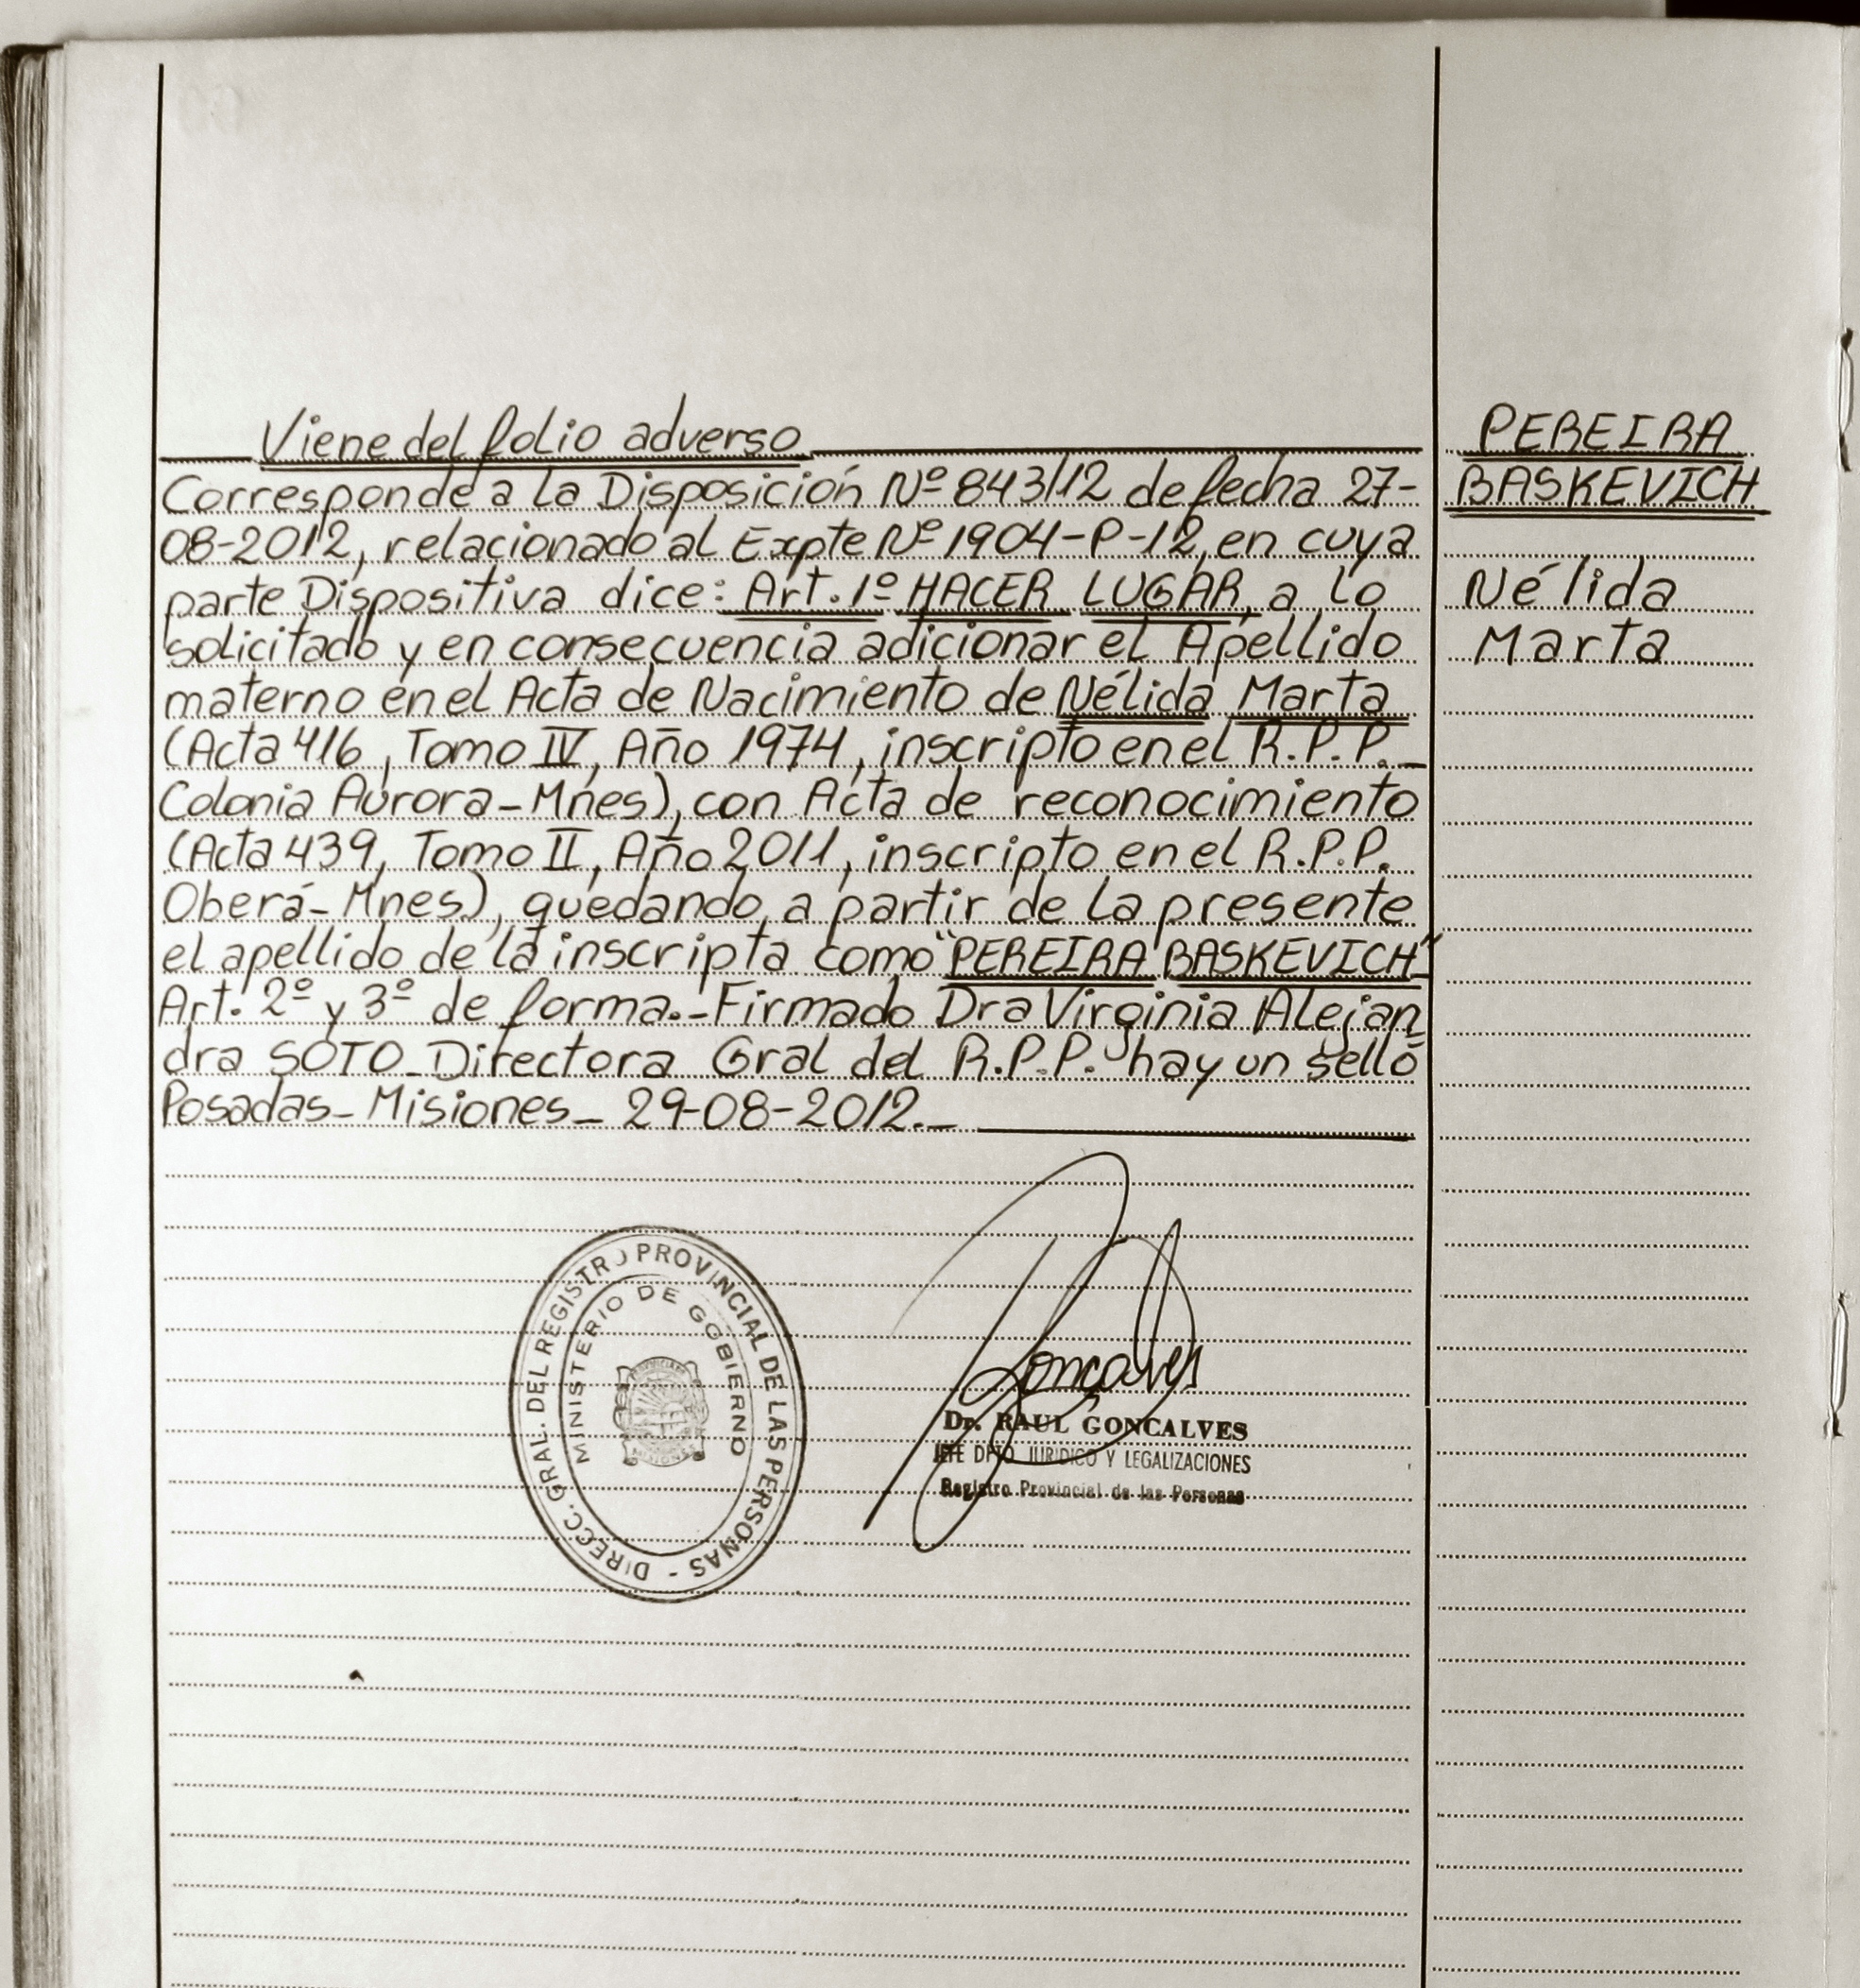 Viene del folio adverso
Corresponde a la Disposición Nº 843/12 de fecha 27-
08-2012, relacionado al Expte Nº 1904-P-12, en cuya
parte Dispositiva dice: Art. 1º HACER LUGAR, a lo
solicitado y en consecuencia adicionar el Apellido
materno en el Acta de Nacimiento de Nélida Marta
(Acta 416, Tomo IV, Año 1974, inscripto en el R.P.P._
Colonia Aurora-Mnes), con Acta de reconocimiento
(Acta 439, Tomo II, Año 2011, inscripto en el R.P.P.
Oberá-Mnes), quedando, a partir de la presente
el apellido de la inscripta como "PEREIRA BASKEVICH"
Art. 2º y 3º de forma.-Firmado Dra Virginia Alejan
dra SOTO_Directora Gral del R.P.P. hay un sello
Posadas_Misiones_ 29-08-2012._
PEREIRA
BASKEVICH
Nélida
Marta
DIRECC. GRAL. DEL REGISTRO PROVINCIAL DE LAS PERSONAS -
MINISTERIO DE GOBIERNO
Goncalves
Dr. RAUL GONCALVES
JEFE DPTO JURIDICO Y LEGALIZACIONES
Registro Provincial de las Personas